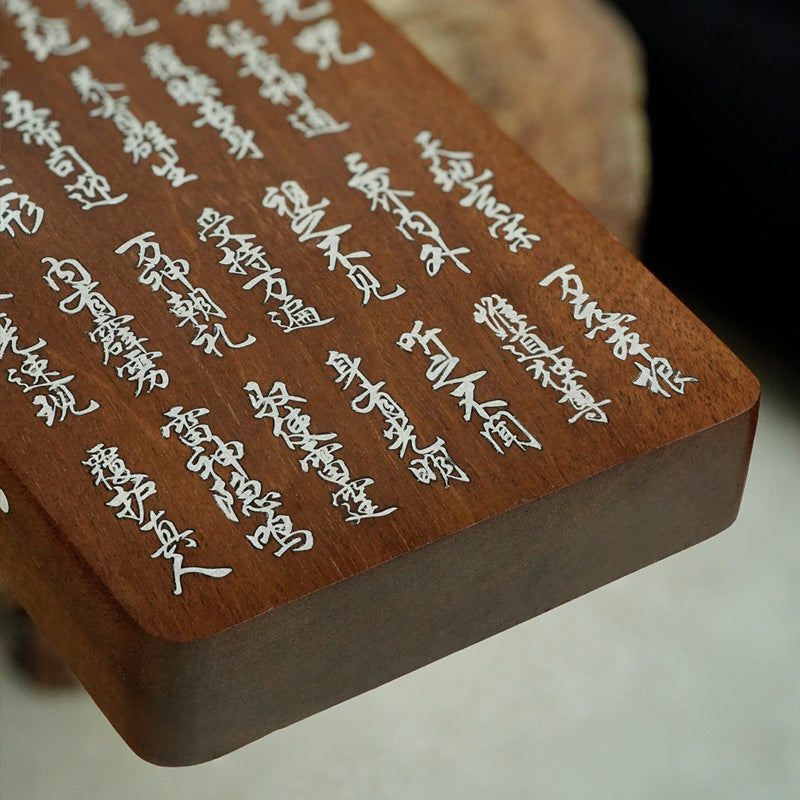 咒
天地玄宗 万炁本根
证吾神通 三界内外 惟道独尊
覆映吾身 视之不见 听之不闻
天地 养育群生 受持万遍 身有光明
五帝司迎 万神朝礼 驭使雷霆
形 内有霹雳 雷神隐鸣
光速现 覆护真人